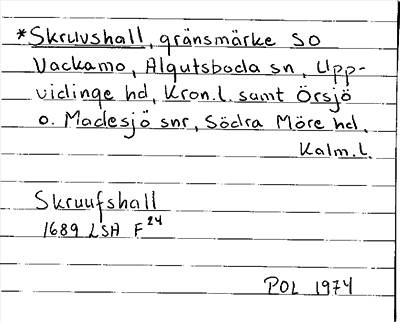 *Skruvshall, gränsmärke SO
Vackamo, Algutsboda sn, Upp-
vidinge hd, Kron.l. samt Örsjö
o. Madesjö snr, Södra Möre hd,
Kalm.l.
Skruufshall
1689 LSA F24
POL 1974